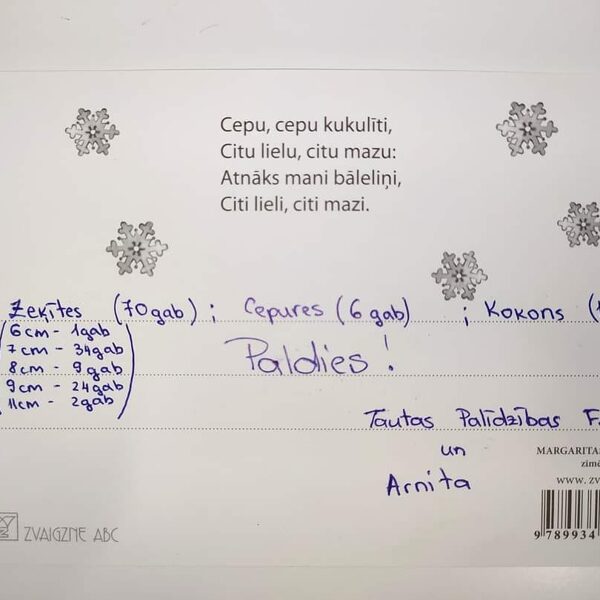 Cepu, cepu kukulīti,
Citu lielu, citu mazu:
Atnāks mani bāleliņi,
Citi lieli, citi mazi.
Zeķītes (70gab) ; Cepures (6 gab) ; Kokons (
(6cm - 1gab
7cm - 34gab
8cm - 9gab
9cm - 24gab
11cm - 2gab)
Paldies!
Tautas Palīdzības F
un
Arnita
MARGARITAS
zīmē
WWW.ZV
9 789934
ZVAIGZNE ABC